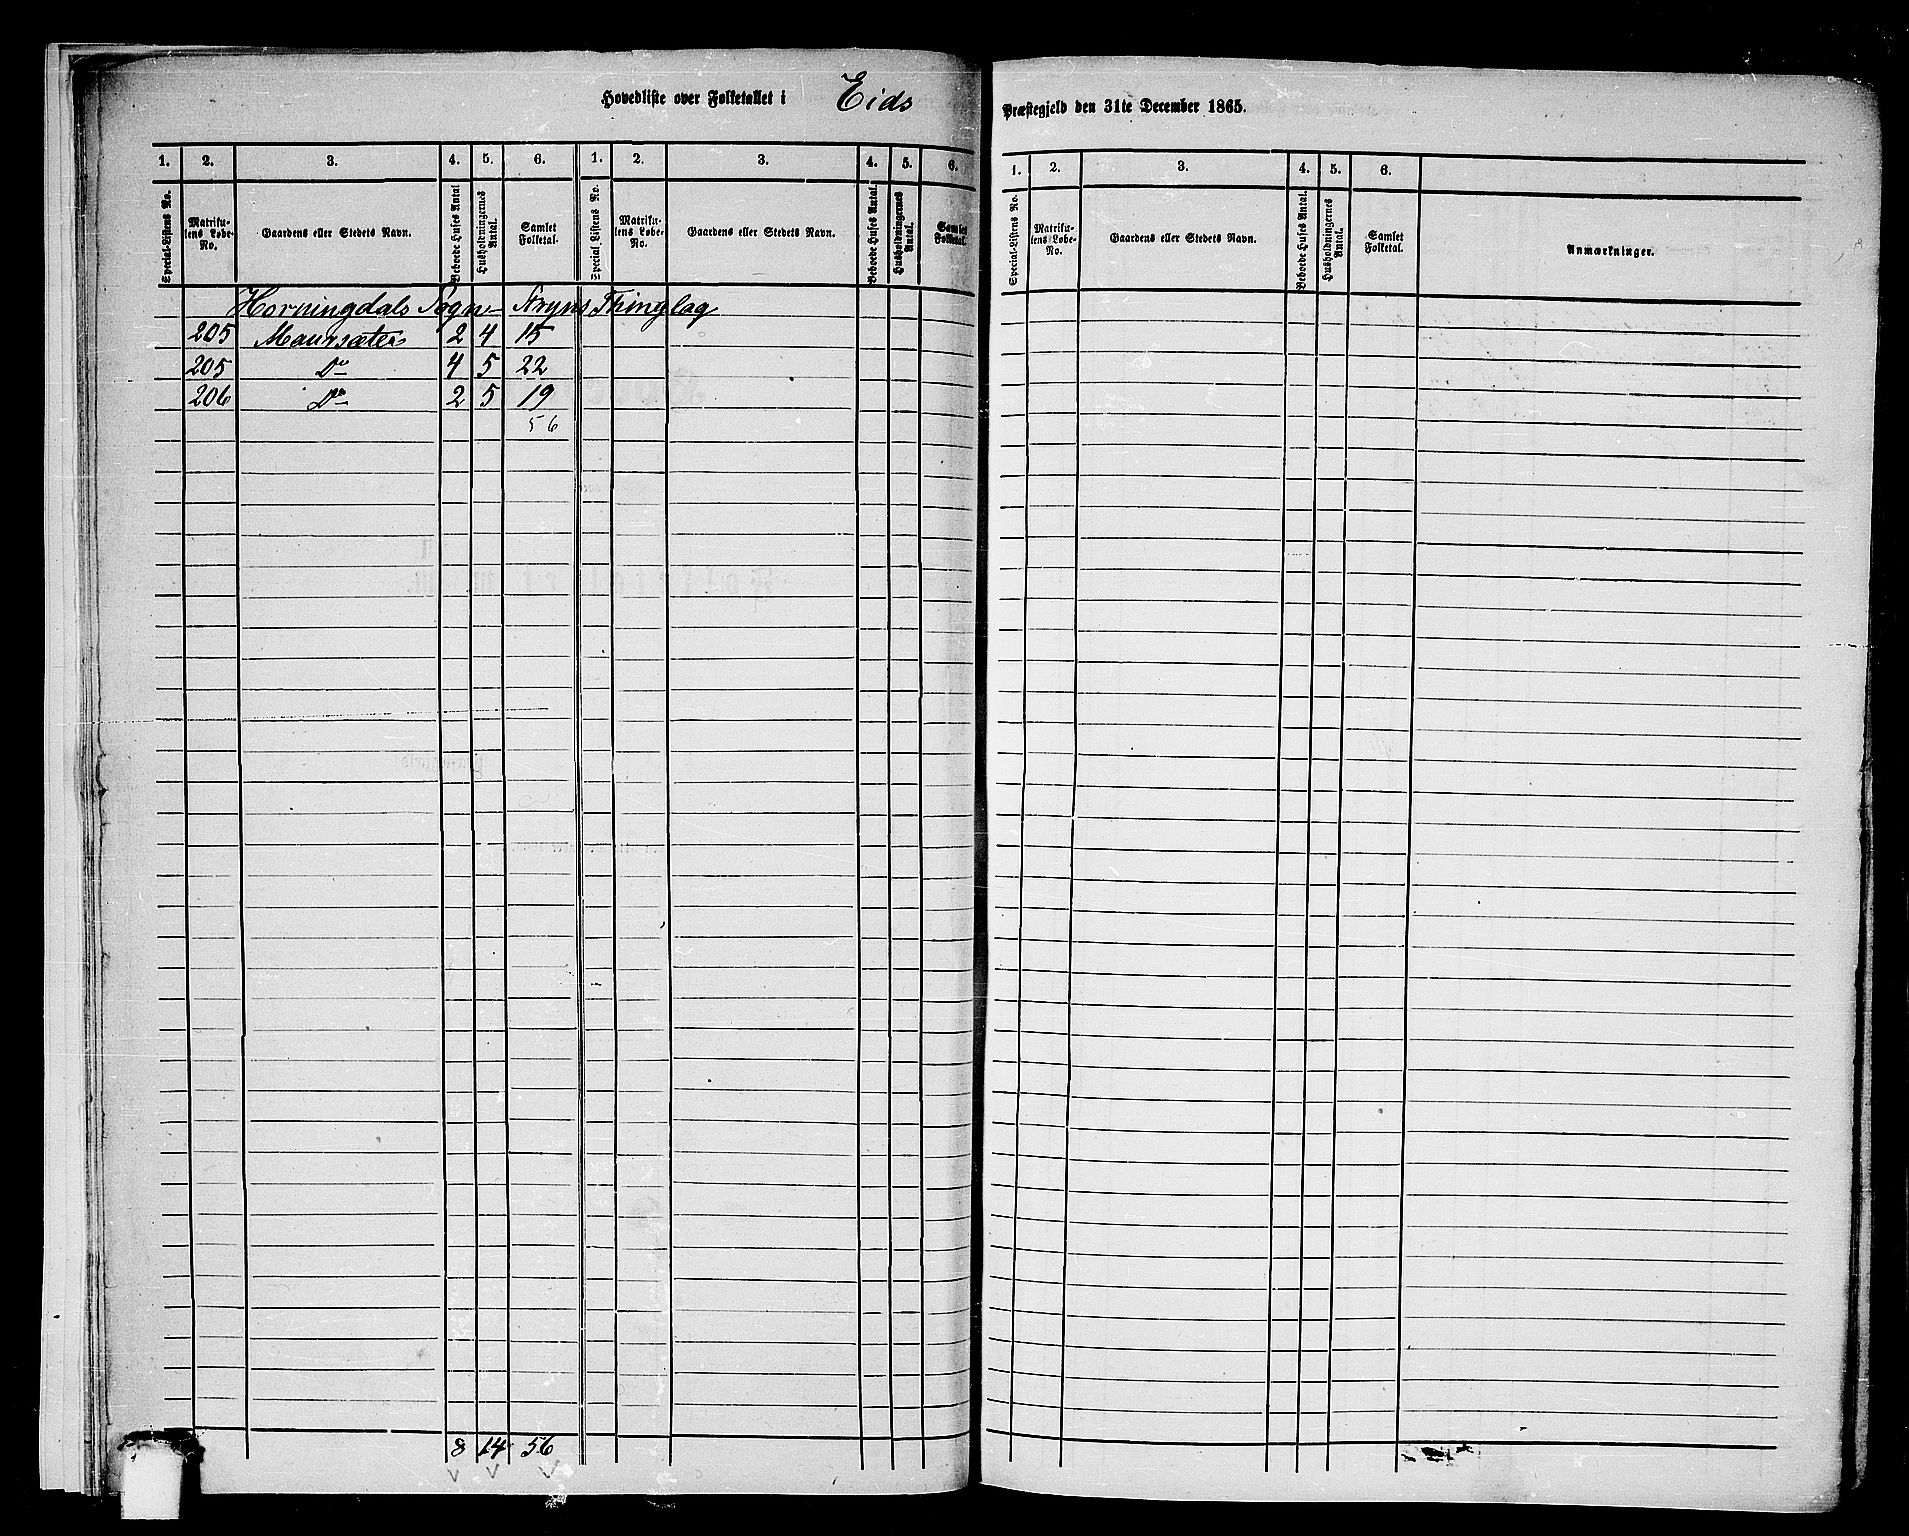 Hovedliste over Folketallet i Eids Præstegjeld den 31te December 1865.
1. 2. 3. 4. 5. 6. 1. 2. 3. 4. 5. 6.
Special-Listens No. Matrikulens Løbe-No. Gaardens eller Stedets Navn. Beboede Huses Antal Husholdningernes Antal. Samlet Folketal. Special Listens No. Matrikulens Løbe-No. Gaardens eller Stedets Navn. Beboede Huses Antal. Husholdningernes Antal. Samlet Folketal.
Horningdals Sogn Stryns Thinglag
205 Maursæter 2 4 15
205 Do 4 5 22
206 Do 2 5 19
56
8 14 56
1. 2. 3. 4. 5. 6.
Special-Listens No. Matrikulens Løbe-No. Gaardens eller Stedets Navn. Beboede Huses Antal. Husholdningernes Antal. Samlet Folketal. Anmærkninger.